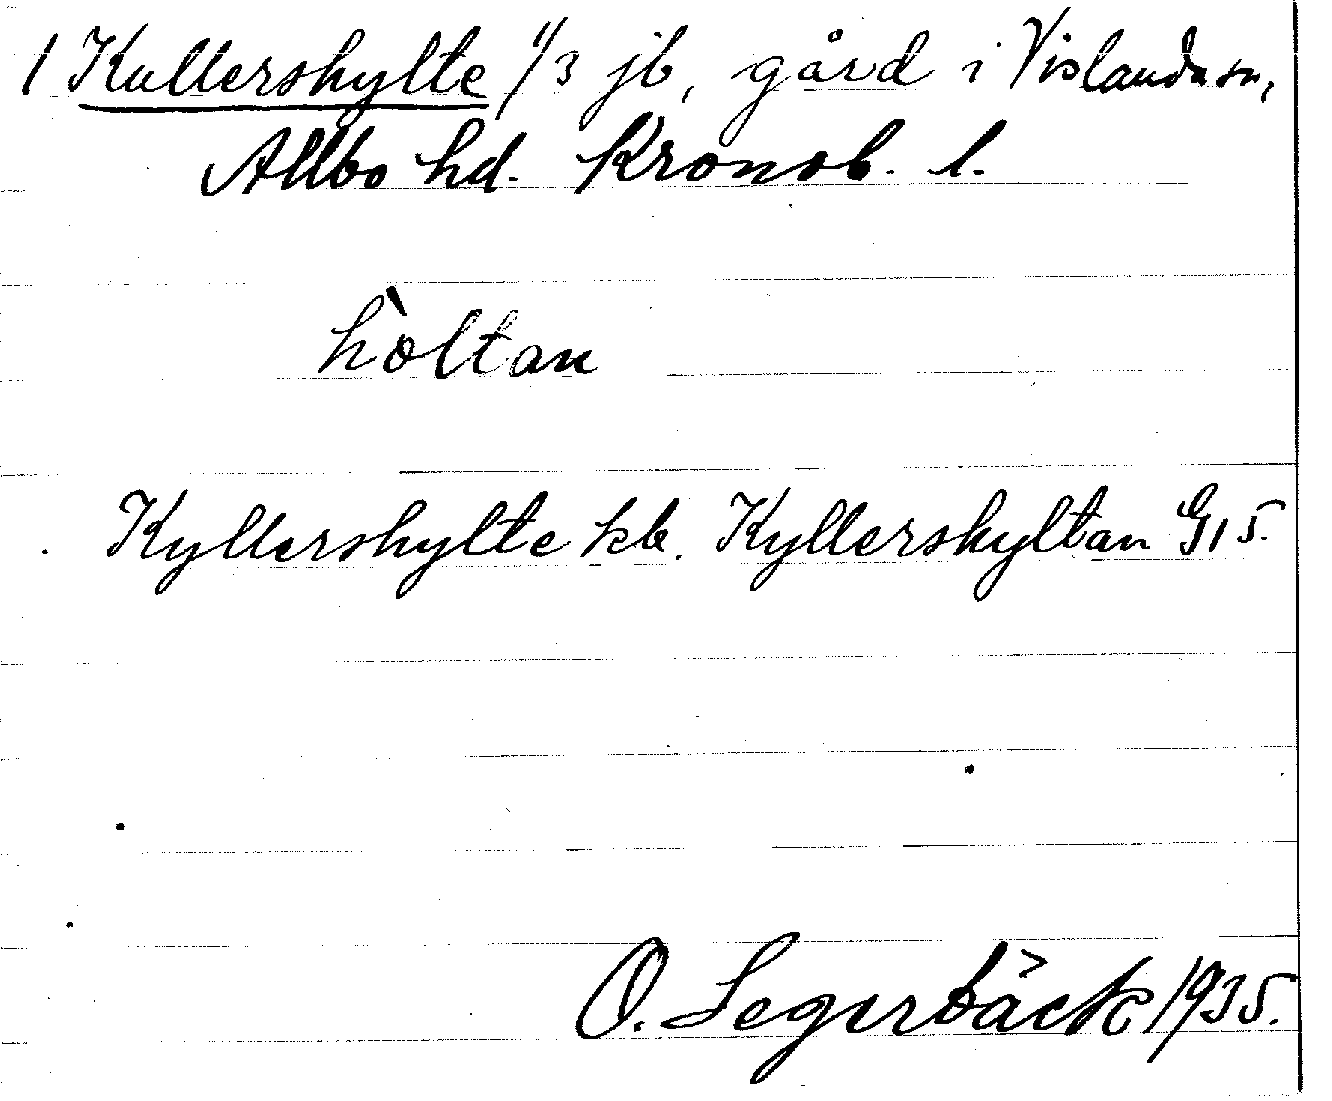 1 Kullershylte 1/3 jb, gård i Vislanda sn,
Allbo hd. Kronob. l.
hòltan
Kyllershylte kb. Kyllershyltan G15.
O. Segerbäck 1935.